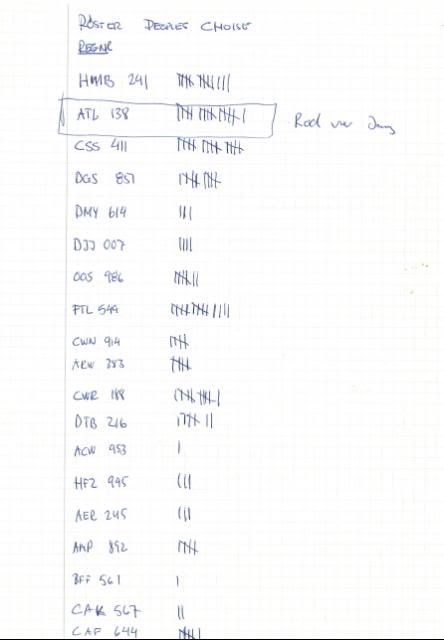 RÖSTER PEOPLES CHOISE
REGNR
HMB 241 |||| |||| |||
ATL 138 |||| |||| |||| |
CSS 411 |||| |||| ||||
DGS 851 |||| ||||
DMY 614 |||
DJJ 007 ||||
OOS 986 |||| ||
FTL 544 |||| |||| ||||
CWN 914 ||||
ARW 383 ||||
CWR 188 |||| |||| |
DTB 216 |||| ||
ACW 953 |
HFZ 945 |||
AER 245 |||
AMP 892 ||||
BFF 561 |
CAK 567 ||
CAF 644 |||| |